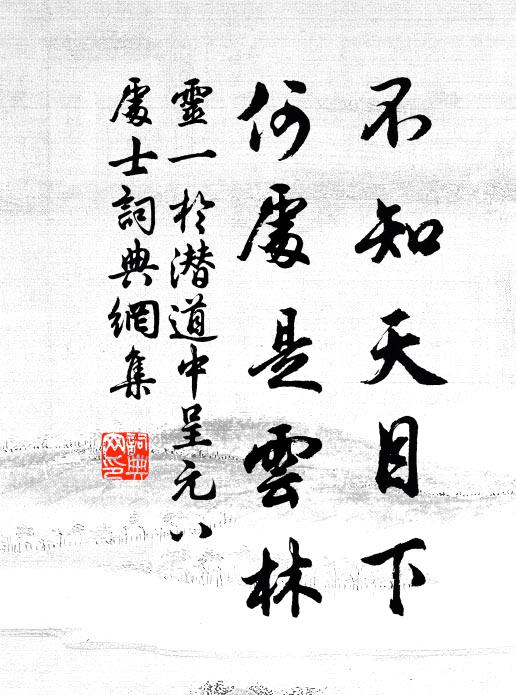 不知天目下
何處是雲林
靈一於潜道中呈元八
處士詞典網集
詞典
网印